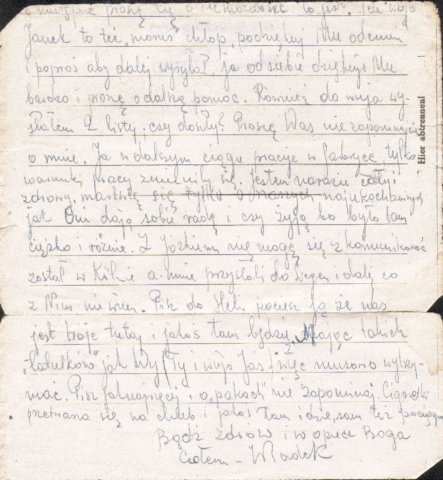 Janek to też "morus" chłop, pocznij Mu odemnie
i poproś aby dalej wysyłał. Ja od siebie dziękuję Mu
bardzo i proszę o dalszą pomoc. Również do wuja wy-
słałem 2 listy, czy doszły? Proszę Was nie zapominajcie
o mnie. Ja w dalszym ciągu pracuję w fabryce tylko
warunki pracy zmieniły się, jestem narazie cały i
zdrowy, martwię się tylko o naszych najukochańszych
jak Oni dają sobie radę i czy żyją bo było tam
ciężko i różnie. Z Józkiem nie mogę się skomunikować
został w Kilnie a mnie przysłali do Siegen i dalej co
z Nim nie wiem. Pisz do Heli, pociesz ją że nas
jest troje tutaj i jakoś tam będzie. Mając takich
jak Wy, Ty i wujo Jaś, więc musowo wytrzy-
mać. Pisz jaknajwięcej i o "pakach" nie zapominaj. Cigaretki
przetrawia się na chleb i jakoś tam idzie, sam też
Bądź zdrów i w opiece Boga
Czołem - Władek
Hier abtrennen!